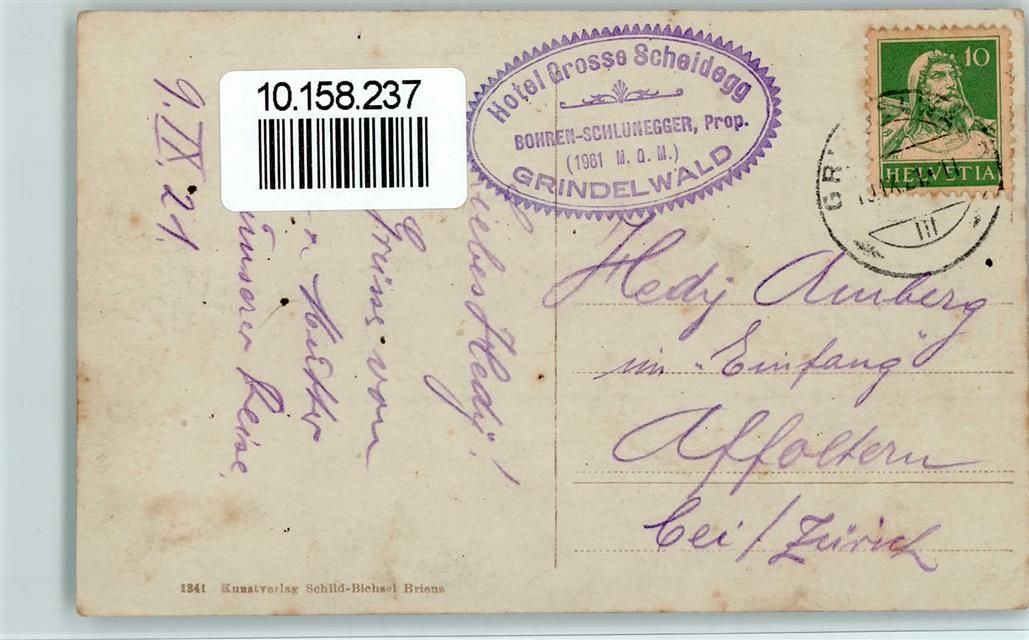 10.158.237
Hotel Grosse Scheidegg
BOHREN-SCHLUNEGGER, Prop.
(1961 M. Ü. M.)
GRINDELWALD
10
HELVETIA
GR
III
Liebes Hedy!
Grüsse von
Mutter
unserer Reise.
9. IX. 21.
Hedy Amberg
im "Einfang"
Affoltern
bei / Zürich
1341 Kunstverlag Schild-Bichsel Brienz